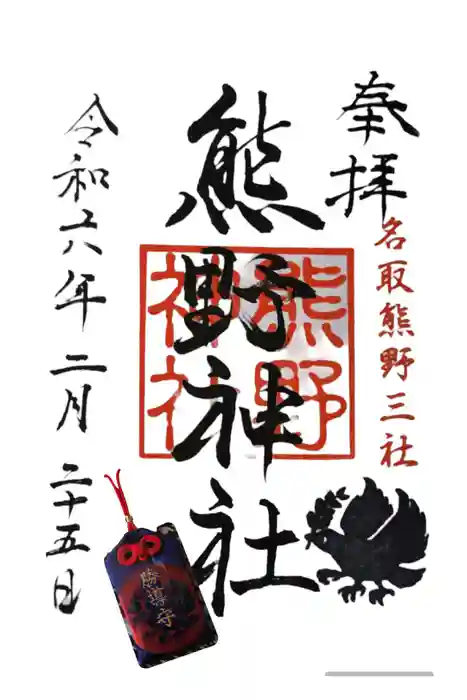 奉拝
名取熊野三社
熊野神社
熊野
神社
令和六年二月二十五日
勝導守